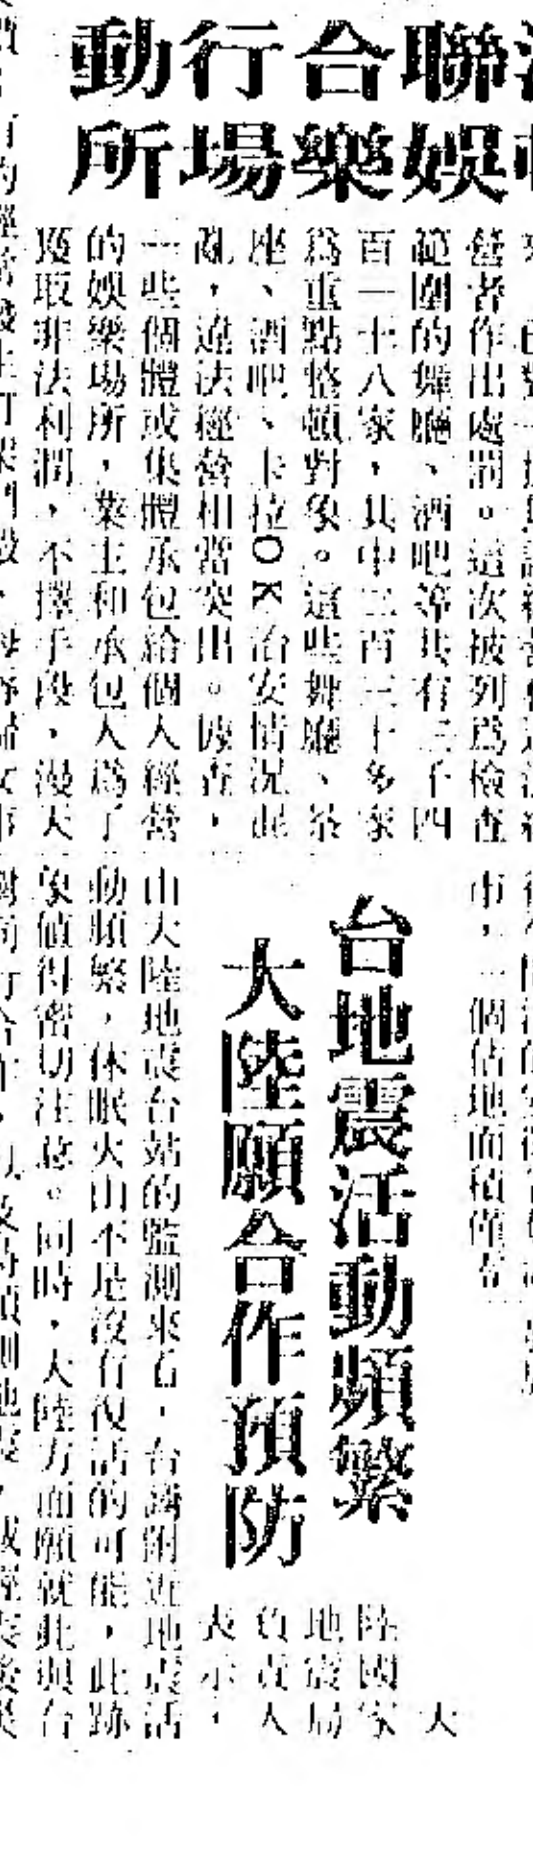 聯合行動
娛樂場所
營者作出處罰。這次被列爲檢查
範圍的舞廳、酒吧等共有三千四
百一十八家，其中二百三十多家
爲重點整頓對象。這些舞廳、茶
座、酒吧、卡拉OK治安情況混
亂，違法經營相當突出。據查，
一些個體或集體承包給個人經營
的娛樂場所，業主和承包人爲了
獲取非法利潤，不擇手段，漫天
市，一個佔地面積僅
台地震活動頻繁
大陸願合作預防
大
陸國家
地震局
負責人
表示，
由大陸地震台站的監測來看，台灣附近地震活
動頻繁，休眠火山不是沒有復活的可能，此跡
象值得密切注意。同時，大陸方面願就此與台